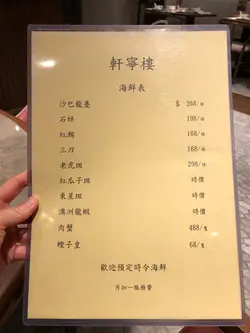 軒寧樓
海鮮表
沙巴龍躉 $ 268/
石蚌 198/
紅鵰 168/
三刀 168/
老虎斑 298/
紅瓜子斑 時價
東星斑 時價
澳洲龍蝦 時價
肉蟹 488/隻
蟶子皇 68/隻
歡迎預定時令海鮮
另加一服務費